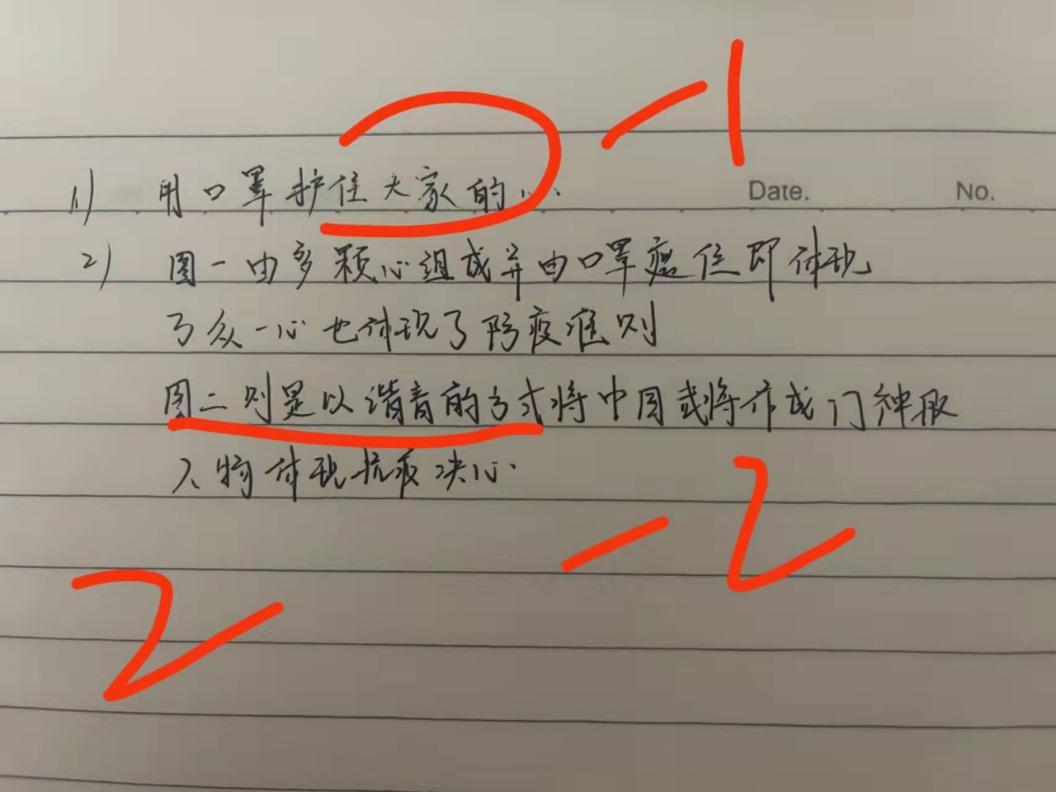 -1
1) 用口罩护住大家的心.
Date. No.
2) 图一由多颗心组成并由口罩遮住即体现
了众一心也体现了防疫准则
图二则是以谐音的方式将中国武将作成门神般
人物体现抗疫决心.
-2
2